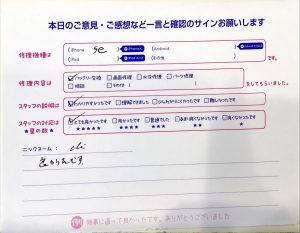 本日のご意見・ご感想など一言と確認のサインお願いします
修理機種は
(iPhone se
(Android
(iPad
(その他
です。
修理内容は
☑バッテリー交換 □画面修理 □水没修理 □パーツ修理
□相談 □その他(
をしてもらいました。
スタッフの説明は
☑わかりやすかったです □理解できました □少しわかりにくかったです □難しかったです
スタッフの対応は
★星の数★
☑とても良かったです □良かったです □普通でした □あまり良くなかったです □良くなかったです
★★★★★ ★★★★ ★★★ ★★ ★
ニックネーム: chi
良かったです。
無事に直って良かったです。ありがとうございました